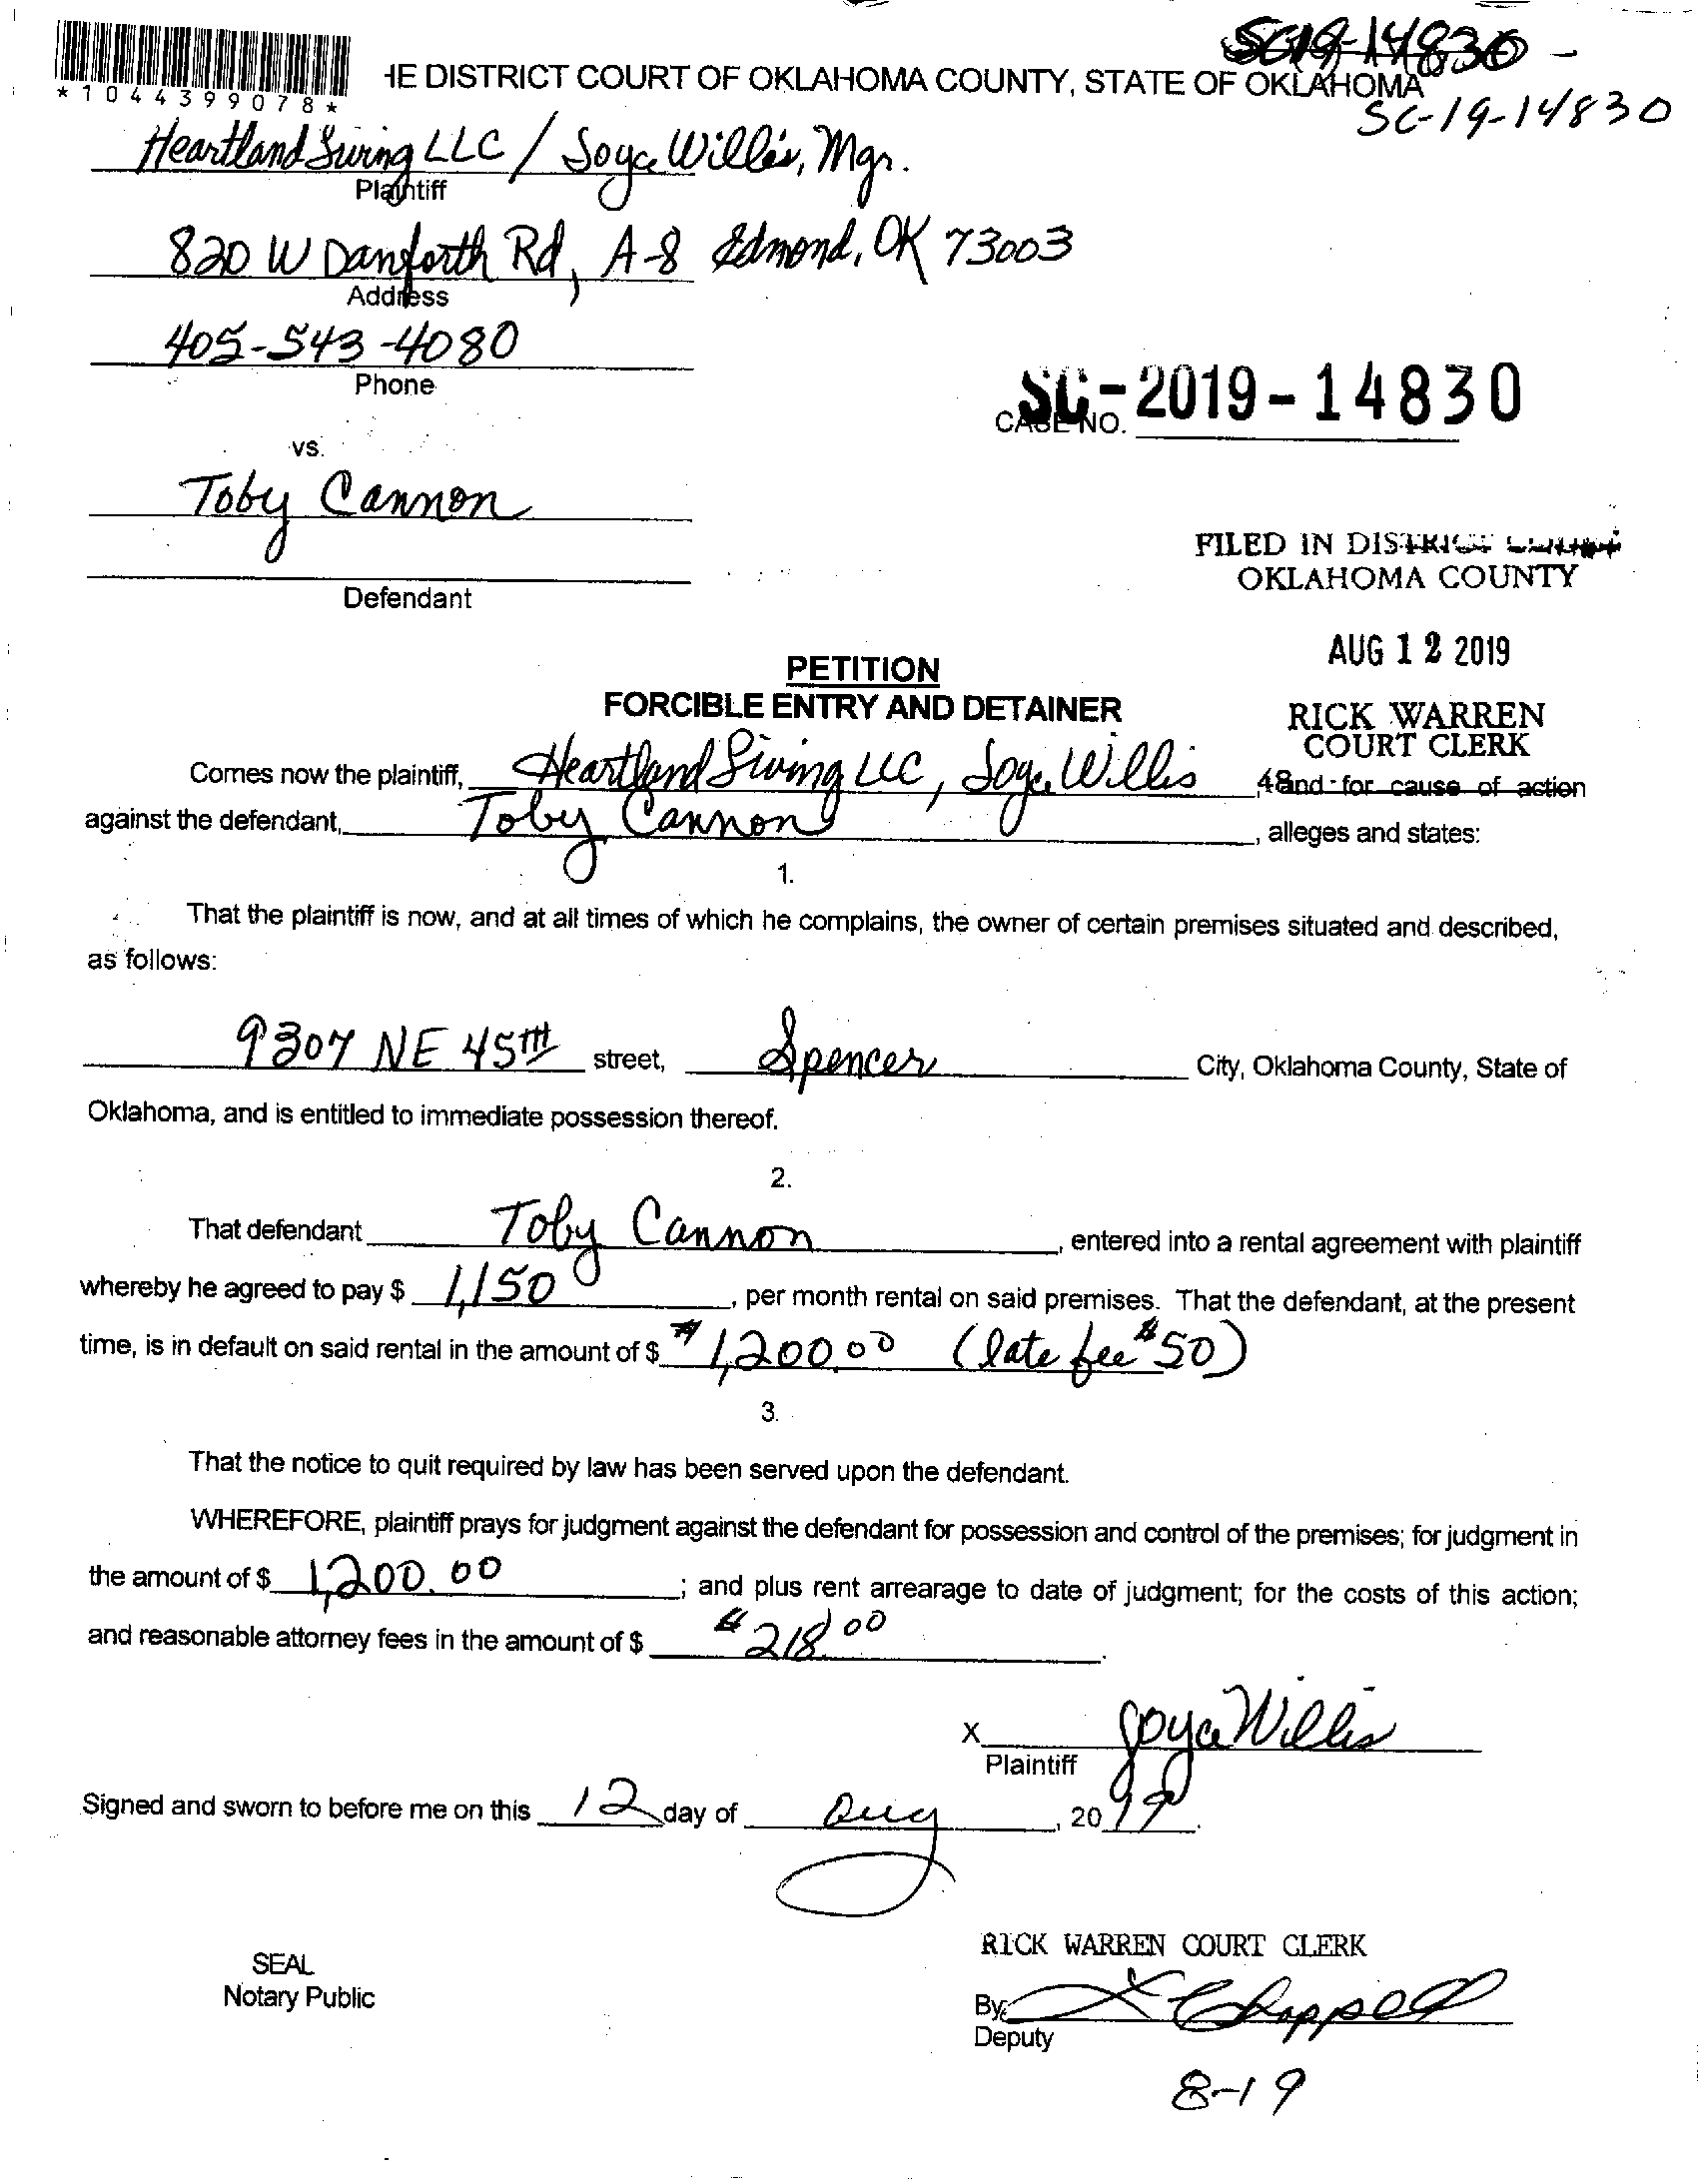 SC19-14830 -
*1044399078*
HE DISTRICT COURT OF OKLAHOMA COUNTY, STATE OF OKLAHOMA
SC-19-14830
Heartland Living LLC / Joyce Willis, Mgr.
Plaintiff
820 W Danforth Rd, A-8 Edmond, OK 73003
Address
405-543-4080
Phone
CASE NO. SC-2019-14830
vs.
Toby Cannon
Defendant
FILED IN DISTRICT COURT
OKLAHOMA COUNTY
AUG 12 2019
RICK WARREN
COURT CLERK
PETITION
FORCIBLE ENTRY AND DETAINER
Comes now the plaintiff, Heartland Living LLC, Joyce Willis 48 and for cause of action
against the defendant, Toby Cannon, alleges and states:
1.
That the plaintiff is now, and at all times of which he complains, the owner of certain premises situated and described,
as follows:
9307 NE 45TH street, Spencer City, Oklahoma County, State of
Oklahoma, and is entitled to immediate possession thereof.
2.
That defendant Toby Cannon, entered into a rental agreement with plaintiff
whereby he agreed to pay $ 1,150, per month rental on said premises. That the defendant, at the present
time, is in default on said rental in the amount of $ $1,200.00 (late fee $50)
3.
That the notice to quit required by law has been served upon the defendant.
WHEREFORE, plaintiff prays for judgment against the defendant for possession and control of the premises; for judgment in
the amount of $ 1,200.00; and plus rent arrearage to date of judgment; for the costs of this action;
and reasonable attorney fees in the amount of $ $218.00.
X Joyce Willis
Plaintiff
Signed and sworn to before me on this 12 day of Aug, 2019.
RICK WARREN COURT CLERK
SEAL
Notary Public
By: Chappell
Deputy
8-19